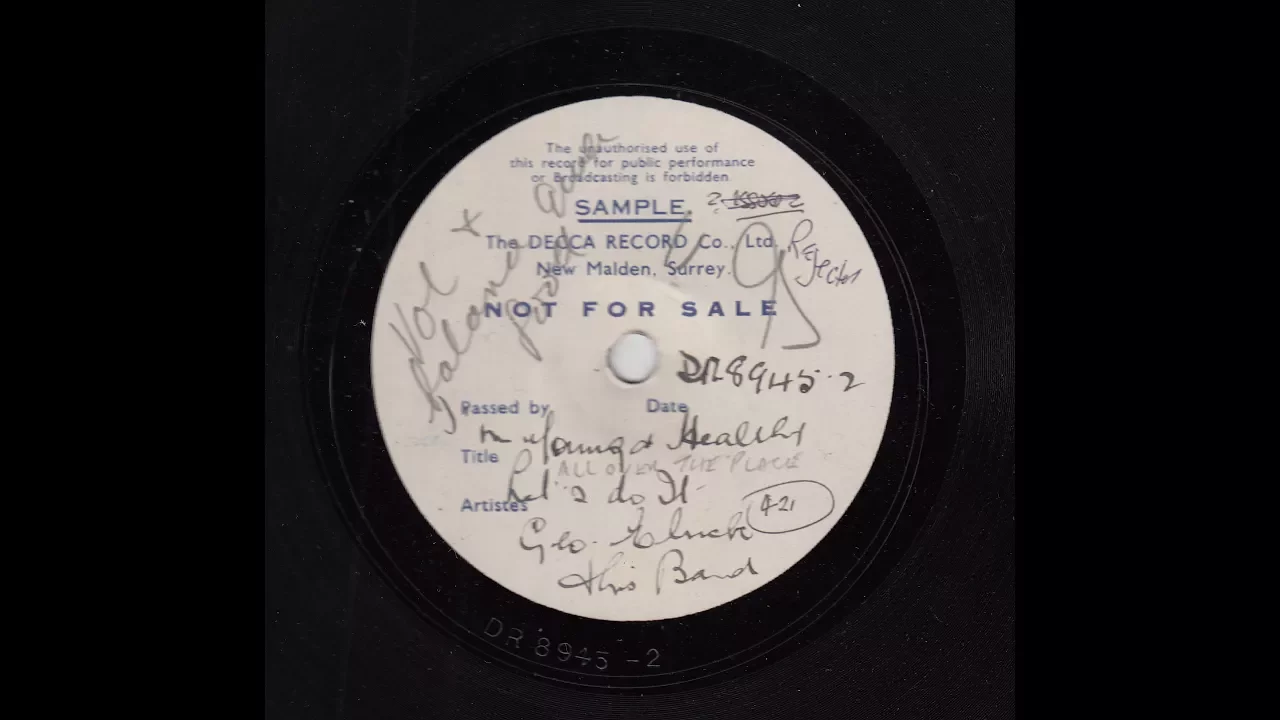 The unauthorised use of
this record for public performance
or Broadcasting is forbidden.
SAMPLE.
?
The DECCA RECORD Co., Ltd.
Rejected
New Malden, Surrey.
Vol
+
Balance
good
NOT FOR SALE
DR8945-2
Passed by Date
Young & Healthy
Title
ALL OVER THE PLACE
Let's do It
Artistes
4-21
Geo. Elrick
& his Band
DR 8945-2